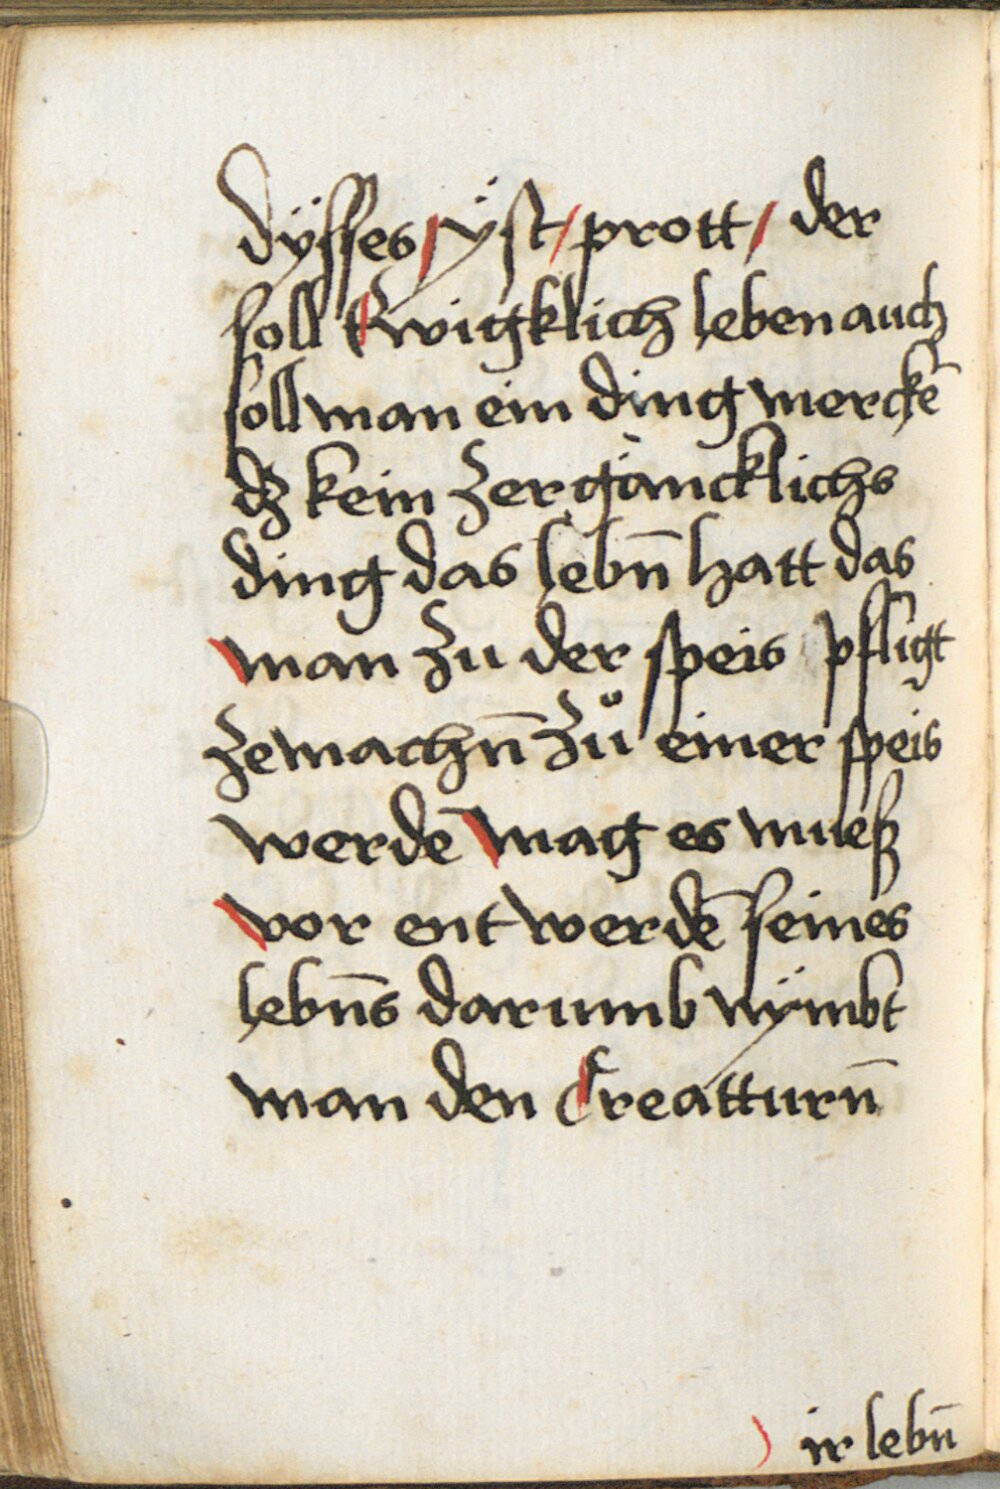 dÿsses / ÿst / prott / der
soll Ewigklich leben auch
soll man ein ding merckē
dz kein zergäncklichs
ding das lebn̄ hatt das
man zu der speis pfligt
zemachn̄ zů einer speis
werdē mag es mueß
vor entwerdē seines
lebn̄s darumb nÿmbt
man den Creatturn̄
ir lebn̄